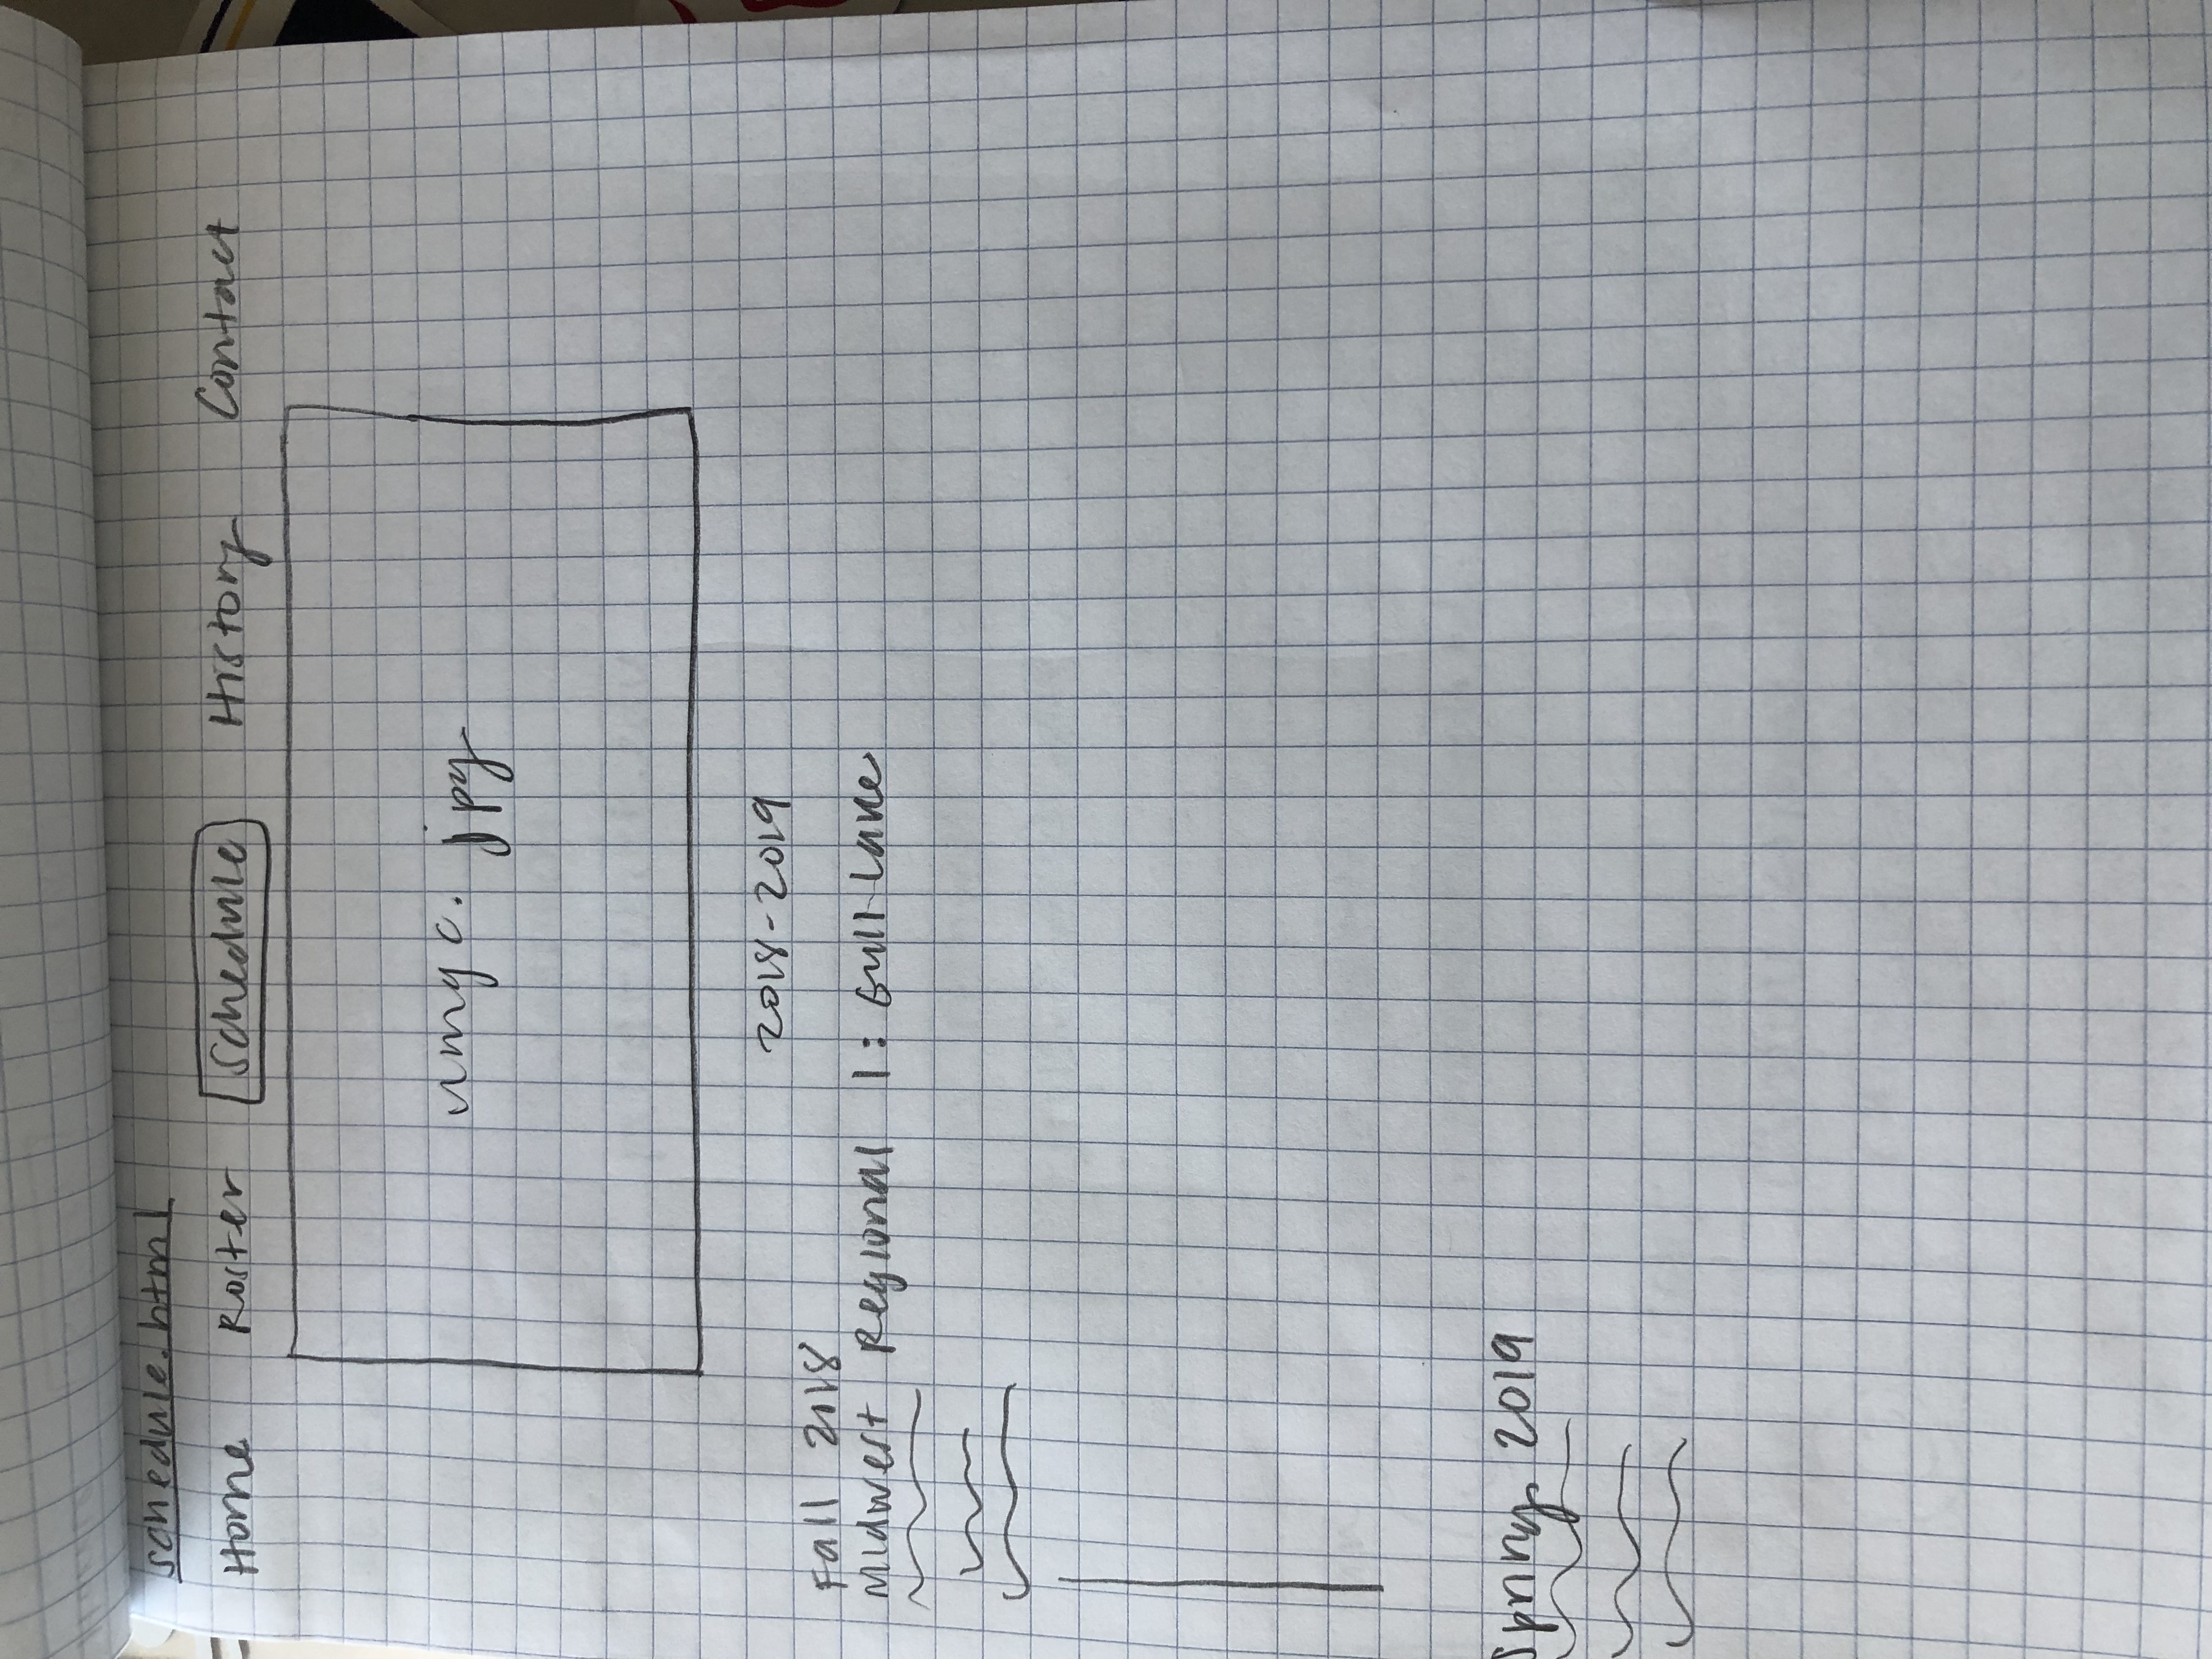 schedule.html
Home Roster Schedule History Contact
umgc.jpg
2018-2019
Fall 2018
Midwest Regional 1: Gull Lake
Spring 2019